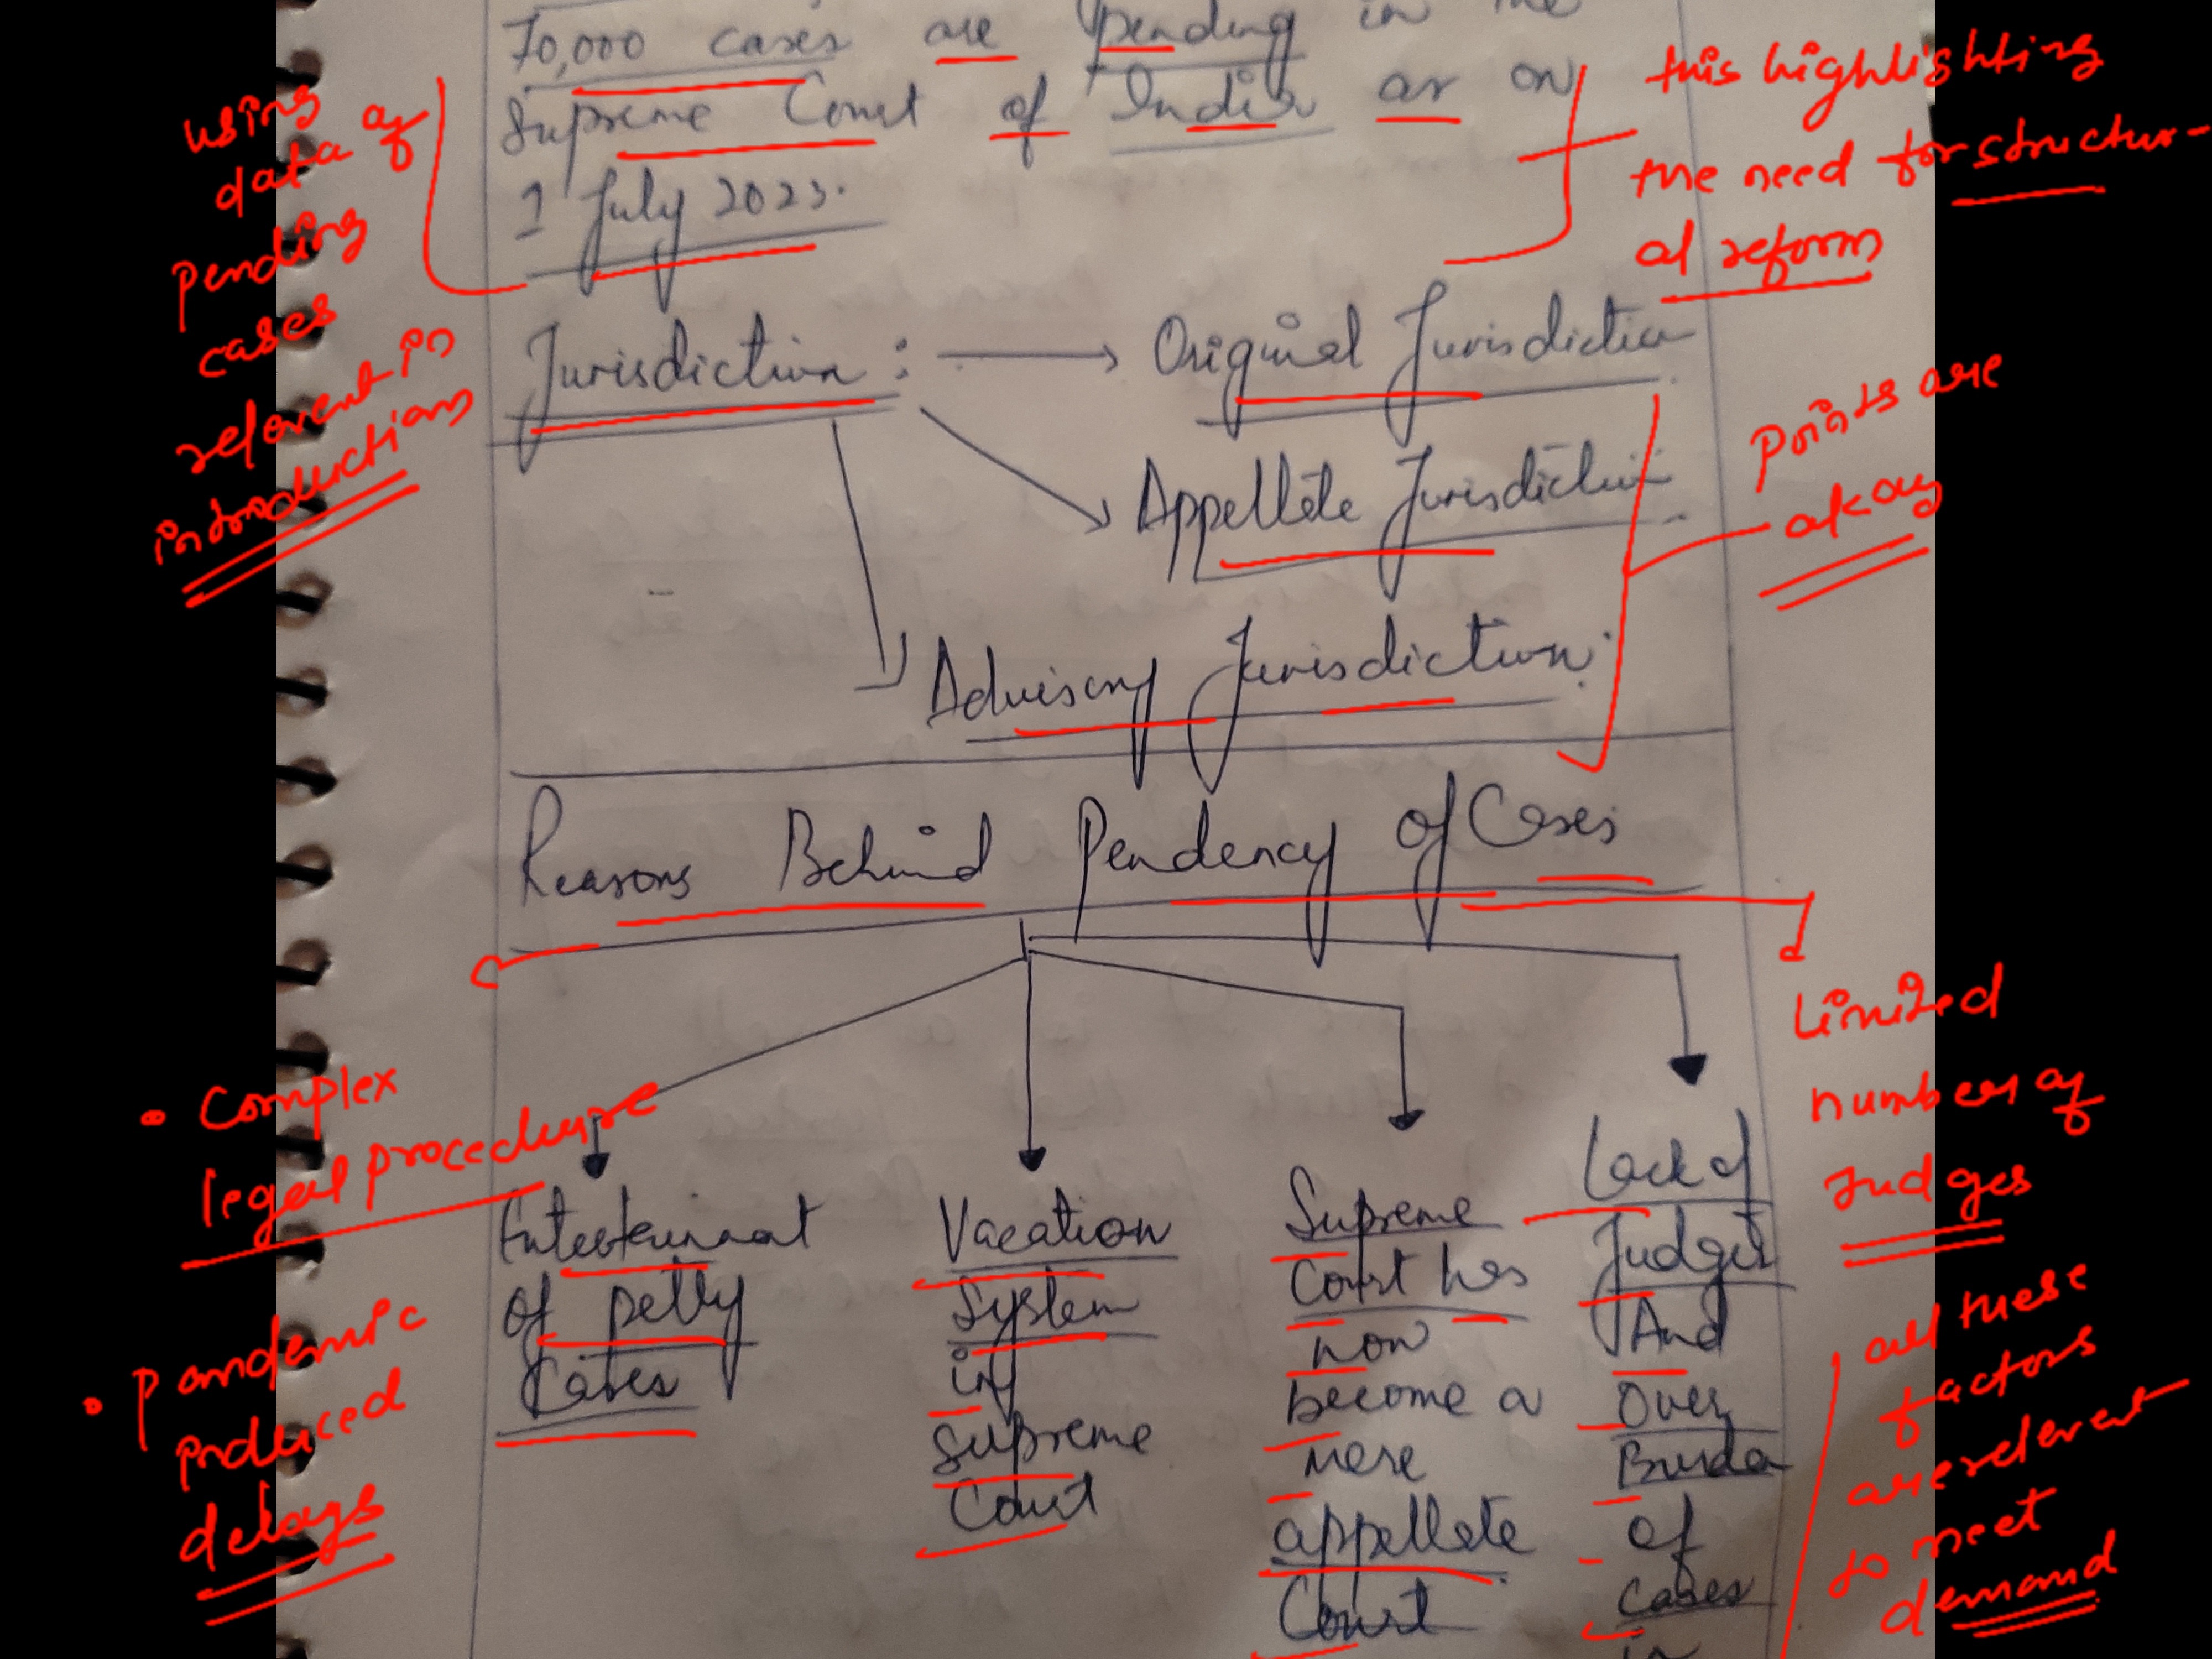 70,000 cases are pending in the
Supreme Court of India as on
1 July 2023.
using
data of
pending
cases
relevent in
introduction
this highlighting
the need for structur-
al reform
Jurisdiction : Original Jurisdiction
Appellate Jurisdiction
Advisory Jurisdiction.
Points are
okay
Reasons Behind Pendency of Cases
• Complex
legal procedure
• Pandemic
produced
delays
Entertainment
of petty
Cases
Vacation
System
in
Supreme
Court
Supreme
Court has
now
become a
mere
appellate
Court
Lack of
Judges
And
Over
Burden
of
cases
in
Limited
number of
Judges
all these
factors
are relevent
to meet
demand